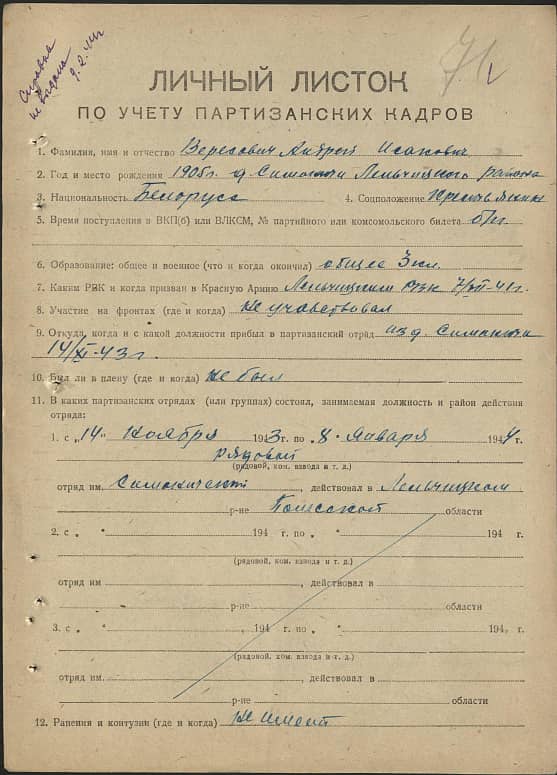 Справка
не выдана
9.2.44г
71
ЛИЧНЫЙ ЛИСТОК
ПО УЧЕТУ ПАРТИЗАНСКИХ КАДРОВ
1. Фамилия, имя и отчество Верехович Андрей Исакович
2. Год и место рождения 1905г. д. Симоничи Лельчицкого района
3. Национальность Белорус 4. Соцположение Крестьянин
5. Время поступления в ВКП(б) или ВЛКСМ, № партийного или комсомольского билета б/п.
6. Образование: общее и военное (что и когда окончил) общее 3 кл.
7. Каким РВК и когда призван в Красную Армию Лельчицким РВК 7/VII-41г.
8. Участие на фронтах (где и когда) Не участвовал
9. Откуда, когда и с какой должности прибыл в партизанский отряд из д. Симоничи
14/XI-43г.
10. Был ли в плену (где и когда) не был
11. В каких партизанских отрядах (или группах) состоял, занимаемая должность и район действия
отряда:
1. с „14" Ноября 1943г. по „8" Января 1944г.
рядовой
(рядовой, ком. взвода и т. д.)
отряд им. Симонический, действовал в Лельчицком
р-не Полесской области
2. с „ " 194 г. по „ " 194 г.
(рядовой, ком. взвода и т. д.)
отряд им. , действовал в
р-не области
3. с „ " 194 г. по „ " 194 г.
(рядовой, ком. взвода и т. д.)
отряд им. , действовал в
р-не области
12. Ранения и контузии (где и когда) Не имеет